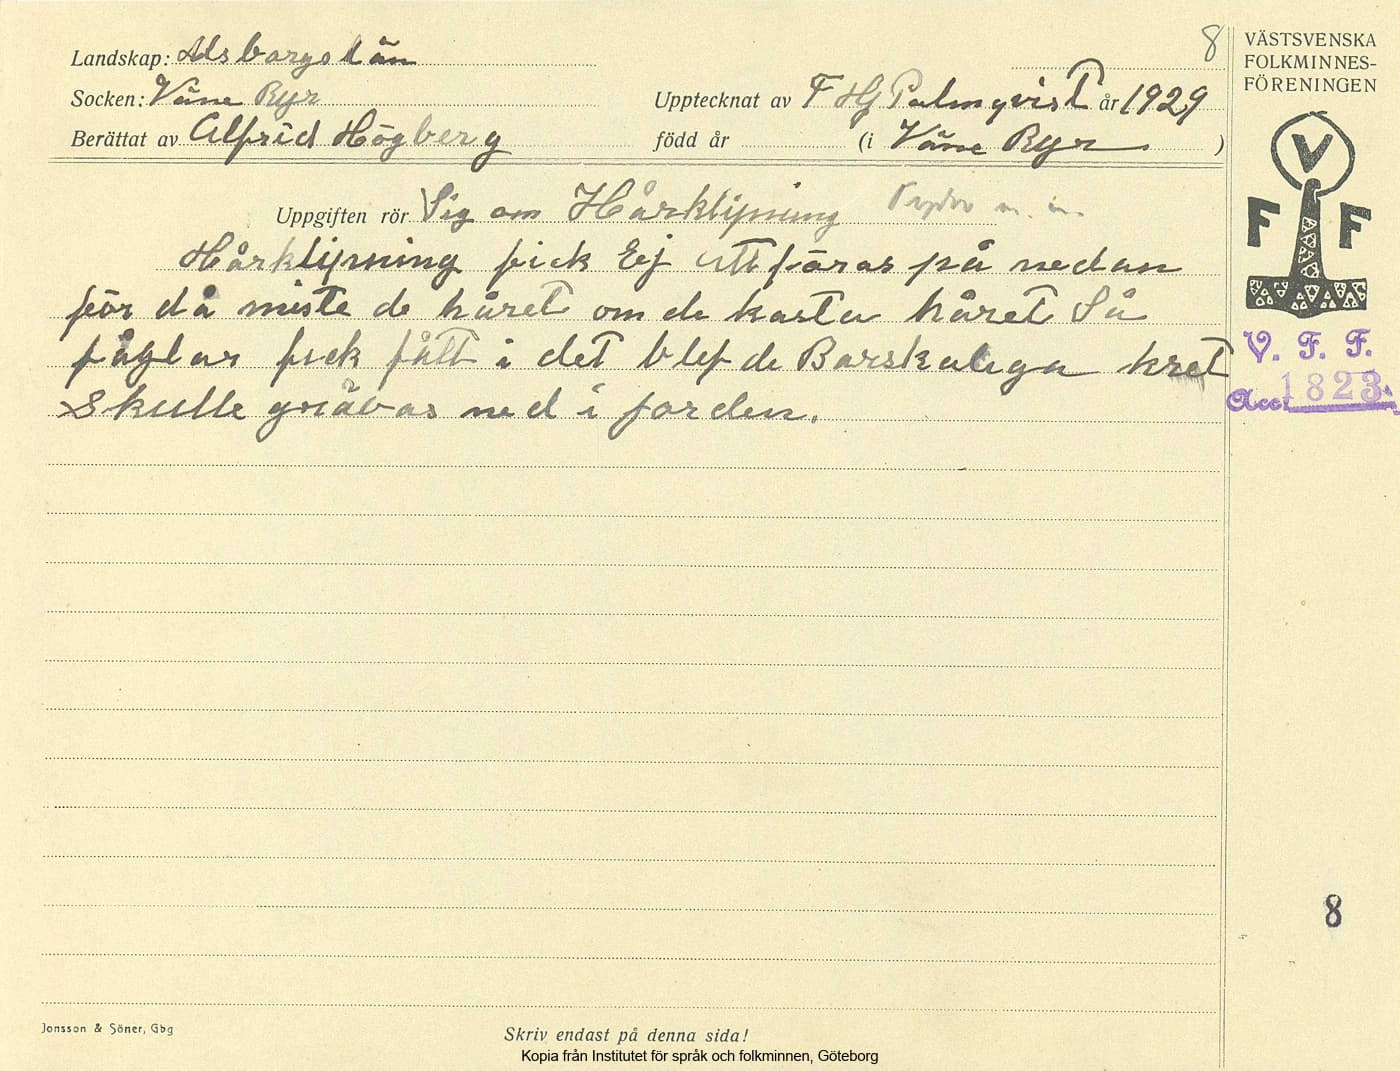 8
VÄSTSVENSKA
FOLKMINNES-
FÖRENINGEN
Landskap: Alsborgslän
Socken: Väne Ryr
Upptecknat av F Hj Palmqvist år 1929
Berättat av Alfrid Högberg
född år (i Väne Ryr )
Uppgiften rör Sig om Hårklipning m. m.
Hårklipning fick Ej uttföras på nedan
för då miste de håret om de kasta håret Så
fåglar fick fått i det blef de Barskaliga kret
Skulle grävas ned i jorden.
V
F F
V. F. F.
Acc. 1823
8
Jonsson & Söner, Gbg
Skriv endast på denna sida!
Kopia från Institutet för språk och folkminnen, Göteborg